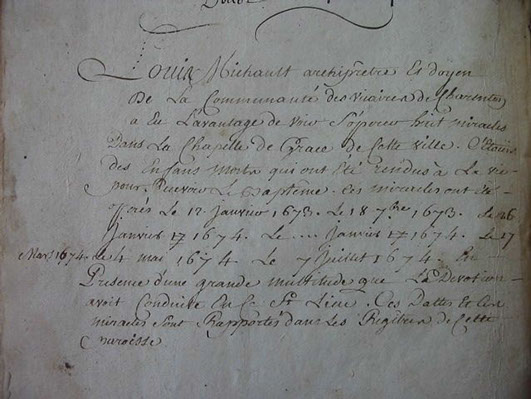 Louis Michault archiprêtre Et doyen
De La Communauté des vicaires de Charenton
a Eu L'avantage de voir s'opérer huit miracles
Dans La Chapelle de Grace de Cette ville. C'étoient
des Enfans morts qui ont été rendus à La vie
pour Recevoir Le Baptême. Ces miracles ont été
opérés Le 12 Janvier 1673. Le 18 7bre 1673. Le 26
Janvier 1674. Le .... Janvier 1674. Le 17
Mars 1674. Le 4 mai 1674. Le 7 Juillet 1674. En
Presence d'une grande multitude que La Devotion
avoit Conduite En Ce St Lieu. Ces Dattes et Ces
miracles sont Rapportés dans Les Registres de Cette
paroisse